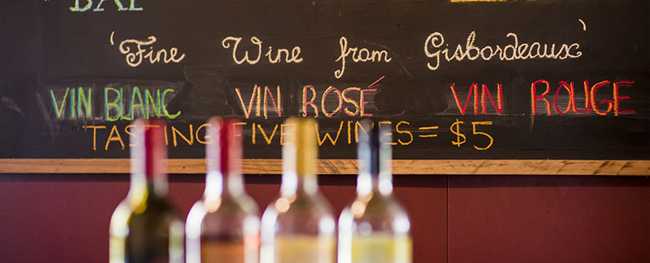 BAR
'Fine Wine from Gisbordeaux'
VIN BLANC VIN ROSÉ VIN ROUGE
TASTING FIVE WINES = $5